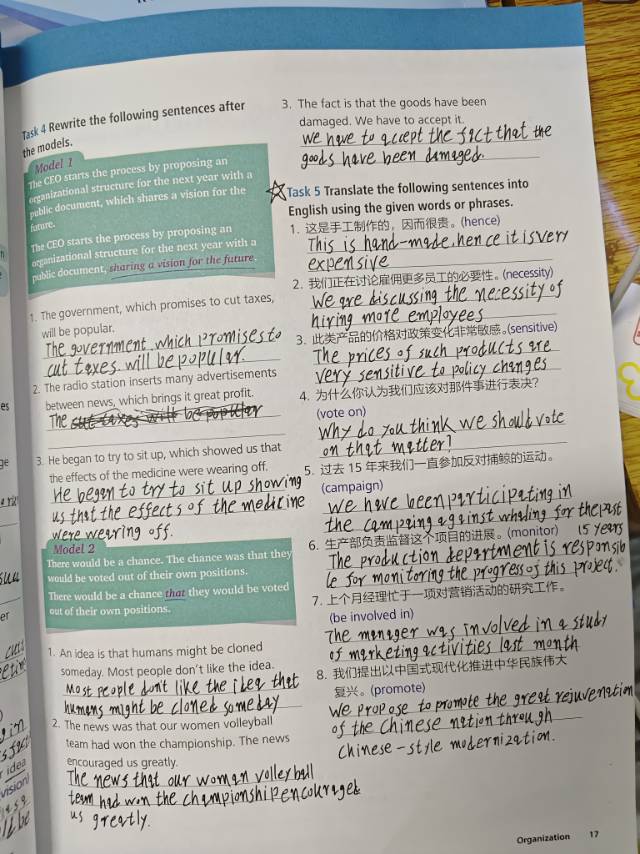 Task 4 Rewrite the following sentences after
the models.
Model 1
The CEO starts the process by proposing an
organizational structure for the next year with a
public document, which shares a vision for the
future.
The CEO starts the process by proposing an
organizational structure for the next year with a
public document, sharing a vision for the future.
1. The government, which promises to cut taxes,
will be popular.
The government which promises to
cut taxes. will be populer.
2. The radio station inserts many advertisements
between news, which brings it great profit.
The cut taxes will be populer
3. He began to try to sit up, which showed us that
the effects of the medicine were wearing off.
He began to try to sit up showing
us that the effects of the medicine
were wearing off.
Model 2
There would be a chance. The chance was that they
would be voted out of their own positions.
There would be a chance that they would be voted
out of their own positions.
1. An idea is that humans might be cloned
someday. Most people don't like the idea.
Most people don't like the idea that
humans might be cloned someday
2. The news was that our women volleyball
team had won the championship. The news
encouraged us greatly.
The news that our woman volleyball
team had won the championship encouraged
us greatly.
3. The fact is that the goods have been
damaged. We have to accept it.
we have to accept the fact that the
goods have been damaged.
Task 5 Translate the following sentences into
English using the given words or phrases.
1. 这是手工制作的，因而很贵。(hence)
This is hand-made. hence it is very
expensive
2. 我们正在讨论雇佣更多员工的必要性。(necessity)
We are discussing the necessity of
hiring more employees
3. 此类产品的价格对政策变化非常敏感。(sensitive)
The prices of such products are
very sensitive to policy changes
4. 为什么你认为我们应该对那件事进行表决？
(vote on)
Why do you think we should vote
on that matter?
5. 过去 15 年来我们一直参加反对捕鲸的运动。
(campaign)
We have been participating in
the campaing against whaling for the past
15 years
6. 生产部负责监督这个项目的进展。(monitor)
The production department is responsib
le for monitoring the progress of this project.
7. 上个月经理忙于一项对营销活动的研究工作。
(be involved in)
The manager was involved in a study
of marketing activities last month
8. 我们提出以中国式现代化推进中华民族伟大
复兴。(promote)
We propose to promote the great rejuvenation
of the Chinese nation through
Chinese-style modernization.
Organization 17